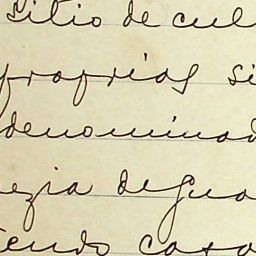 sitio de cul
proprias si
denominad
ezia de Gua
tendo casa